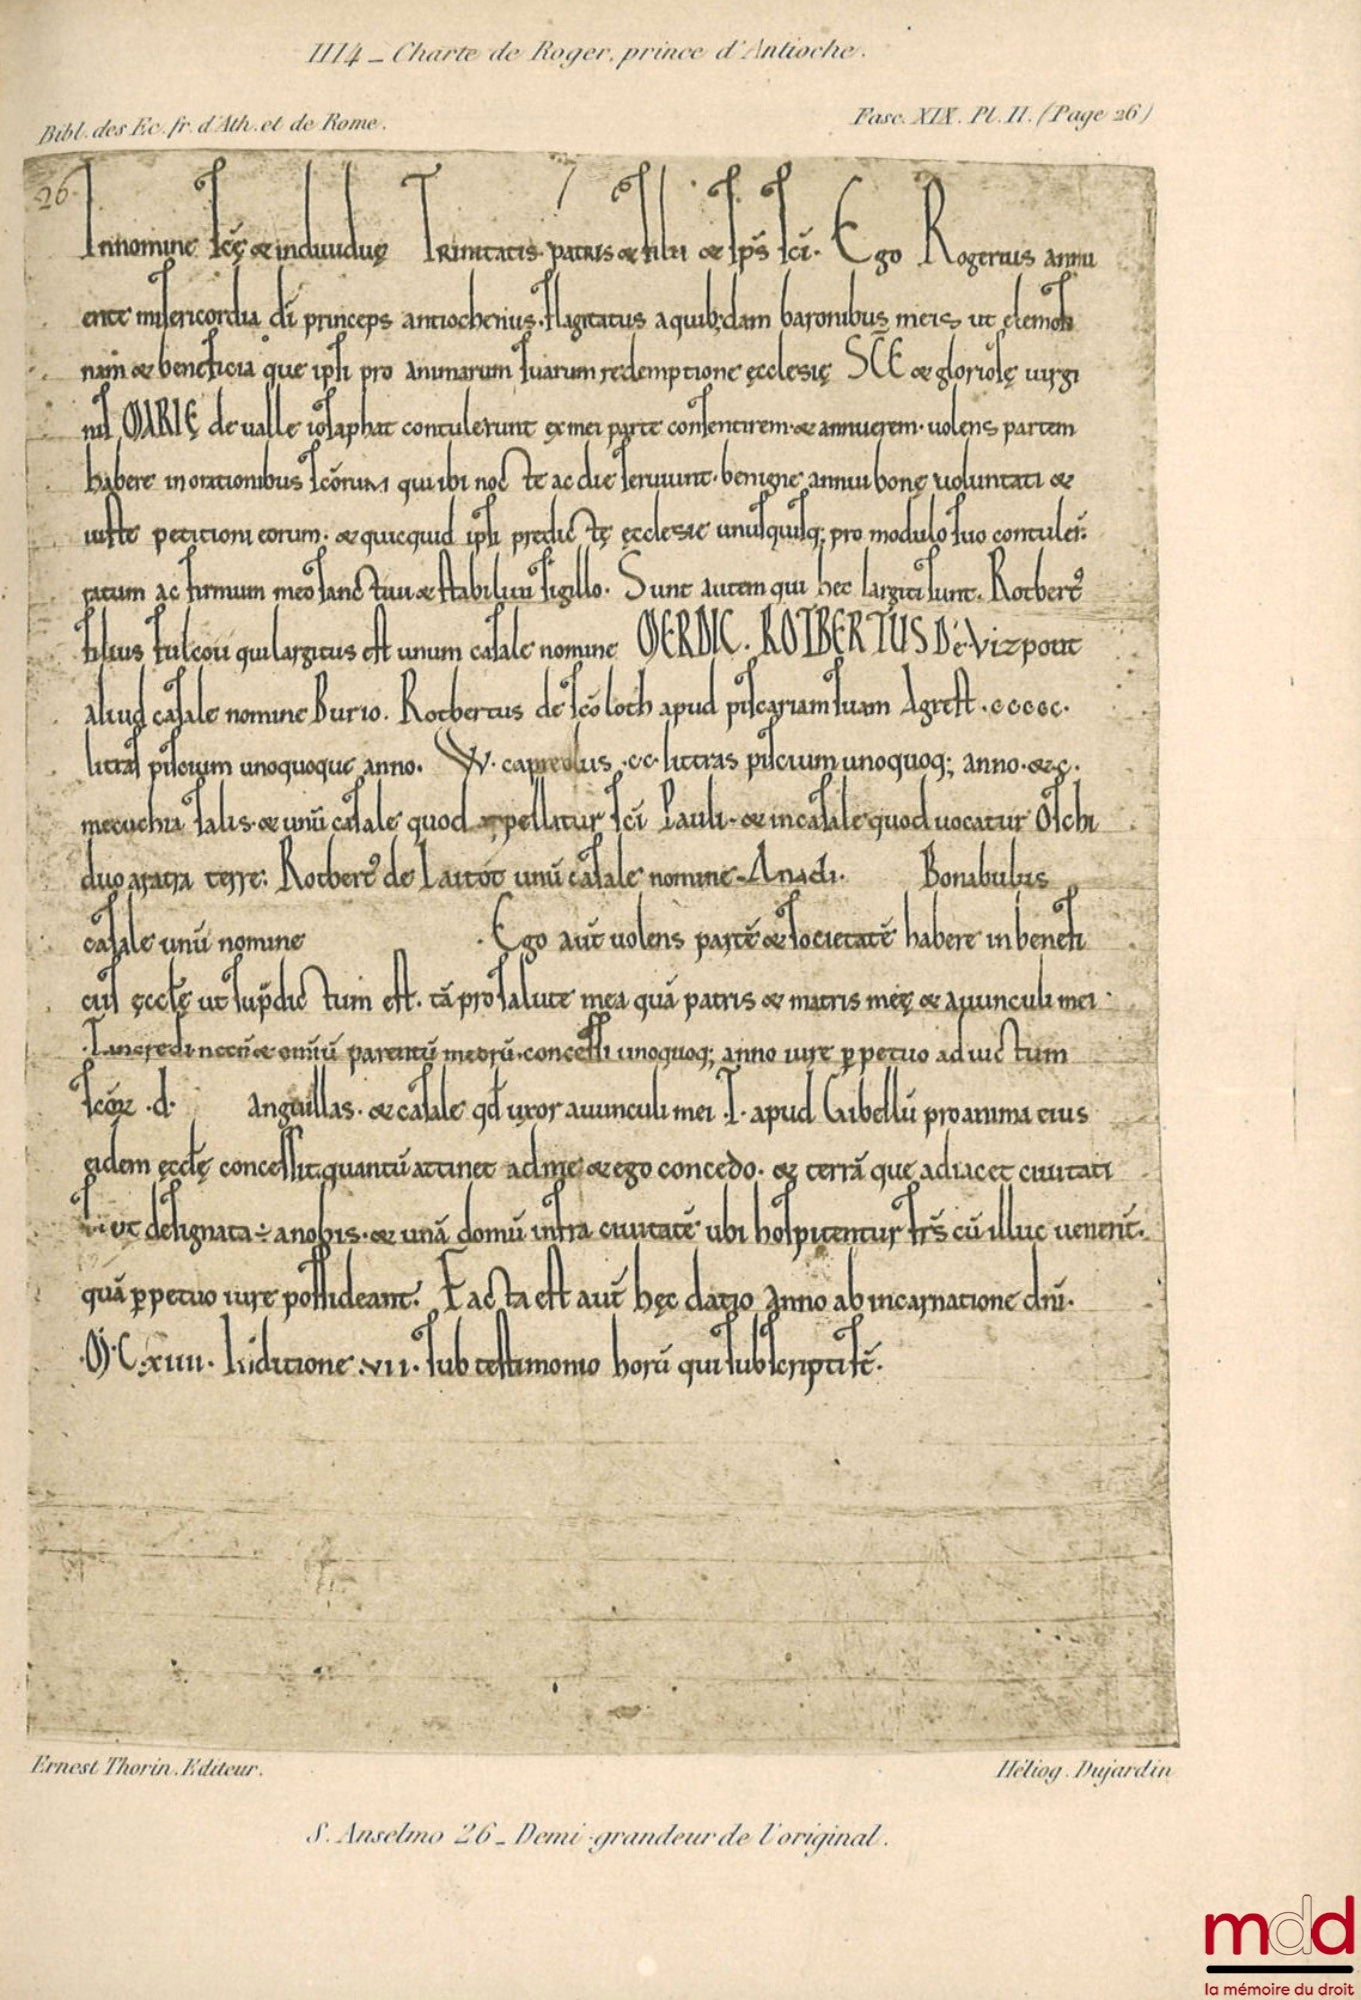 1114 _ Charte de Roger, prince d'Antioche.
Bibl. des Ec. fr. d'Ath. et de Rome.
Fasc. XIX. Pl. II. (Page 26)
26
7
In nomine scę & indiuiduę Trinitatis. patris & filii & sp̄s sc̄i. Ego Rogerius annu
ente misericordia di princeps antiochenus. flagitatus a quib;dam baronibus meis ut elemosi
nam & beneficia que ipsi pro animarum suarum redemptione ęcclesię SCE & gloriosę uirgi
nis MARIĘ de ualle iosaphat contulerunt ex mei parte consentirem & annuerem. uolens partem
habere in orationibus sc̄orum qui ibi nocte ac die seruiunt. benigne annui bonę uoluntati &
iustę petitioni eorum. & quicquid ipsi predictę ęcclesie unusquisq; pro modulo suo contuler̄.
ratum ac firmum meo sanctiui & stabiliui sigillo. Sunt autem qui hec largiti sunt. Rotbert᷒
filius fulcoii qui largitus est unum casale nomine MERDIC. ROTBERTUS De Vizpont
aliud casale nomine Burio. Rotbertus de sc̄o loth apud piscariam suam Agrest. ccccc.
littras piscium unoquoque anno. W. capreolus .cc. littras piscium unoquoq; anno. & c.
mecuchia salis. & unū casale quod appellatur sc̄i Pauli. & in casale quod uocatur Oschi
duo aratra terre. Rotbert᷒ de Laitot unū casale nomine Anadi. Bonabulus
casale unū nomine . Ego aut̄ uolens partē & societatē habere in benefi
ciis ęcclę ut sup̄dictum est. tā pro salute mea quā patris & matris meę & auunculi mei
Tancredi necn̄ & omniū parentū meorū. concessi unoquoq; anno iure p̱petuo ad uictum
sc̄oꝝ .d. anguillas. & casale qđ uxor auunculi mei .T. apud Gibellū pro anima eius
eidem ęcclę concessit. quantū attinet ad me & ego concedo. & terrā que adiacet ciuitati
ut designata ÷ a nobis. & unā domū infra ciuitatē ubi hospitentur frs̄ cū illuc uenerint̄.
quā p̱petuo iure possideant. Facta est aut̄ hęc datio Anno ab incarnatione dnī.
M. C. xiiii. Inditione .vii. sub testimonio horū qui subscripti st̄.
Ernest Thorin. Editeur.
Héliog. Dujardin
S. Anselmo 26 _ Demi-grandeur de l'original.
mdd
la mémoire du droit